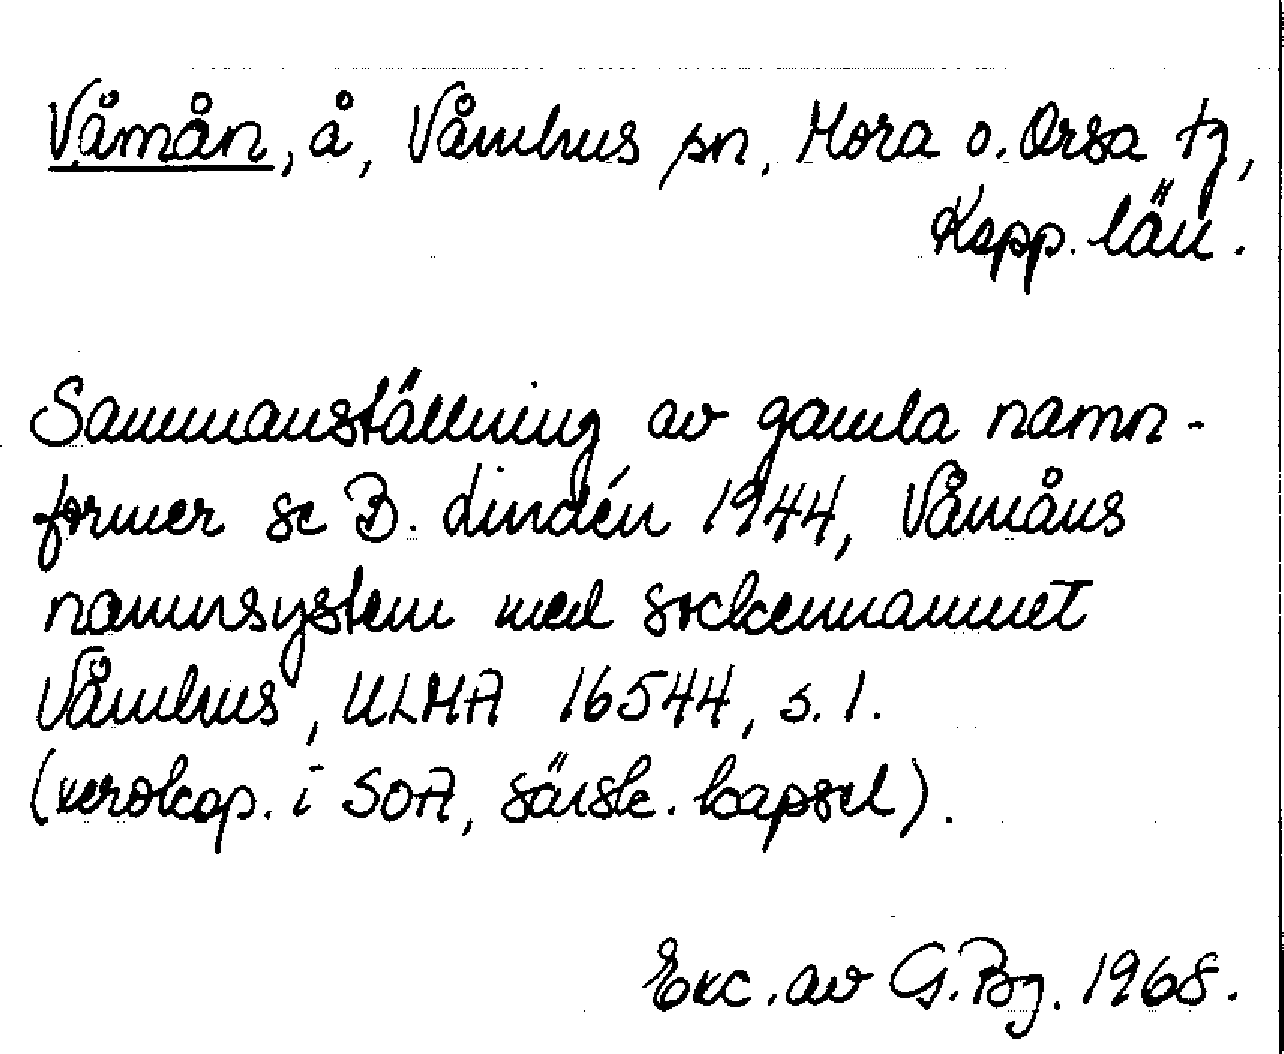 Våmån, å, Våmhus sn, Mora o. Orsa tg,
Kopp. län.
Sammanställning av gamla namn-
former se B. Lindén 1944, Våmåns
namnsystem med sockennamnet
Våmhus, ULMA 16544, s. 1.
(xerokop. i SOA, särsk. kapsel).
Exc. av G. Bg. 1968.